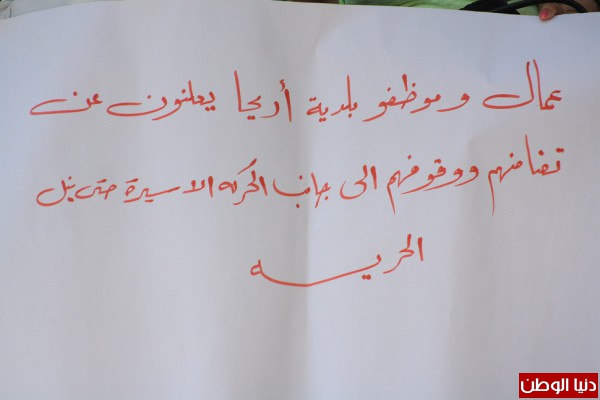 عمال وموظفو بلدية أريحا يعلنون عن
تضامنهم ووقوفهم الى جانب الحركه الاسيرة حتى نيل
الحريه
دنيا الوطن